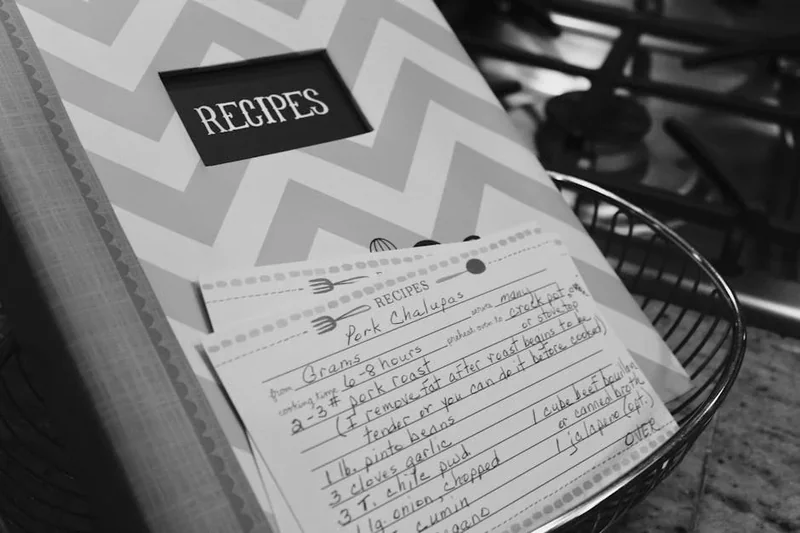 RECIPES
RECIPES
Pork Chalupas
from Grams serves many
cooking time 6-8 hours preheat oven to crock pot
or stovetop
2-3# pork roast
(I remove fat after roast begins to be
tender or you can do it before cooked)
1 lb. pinto beans
3 cloves garlic 1 cube beef bouillon
3 T. chile pwd or canned broth
1 lg. onion, chopped 1 jalapeno (opt.)
cumin OVER